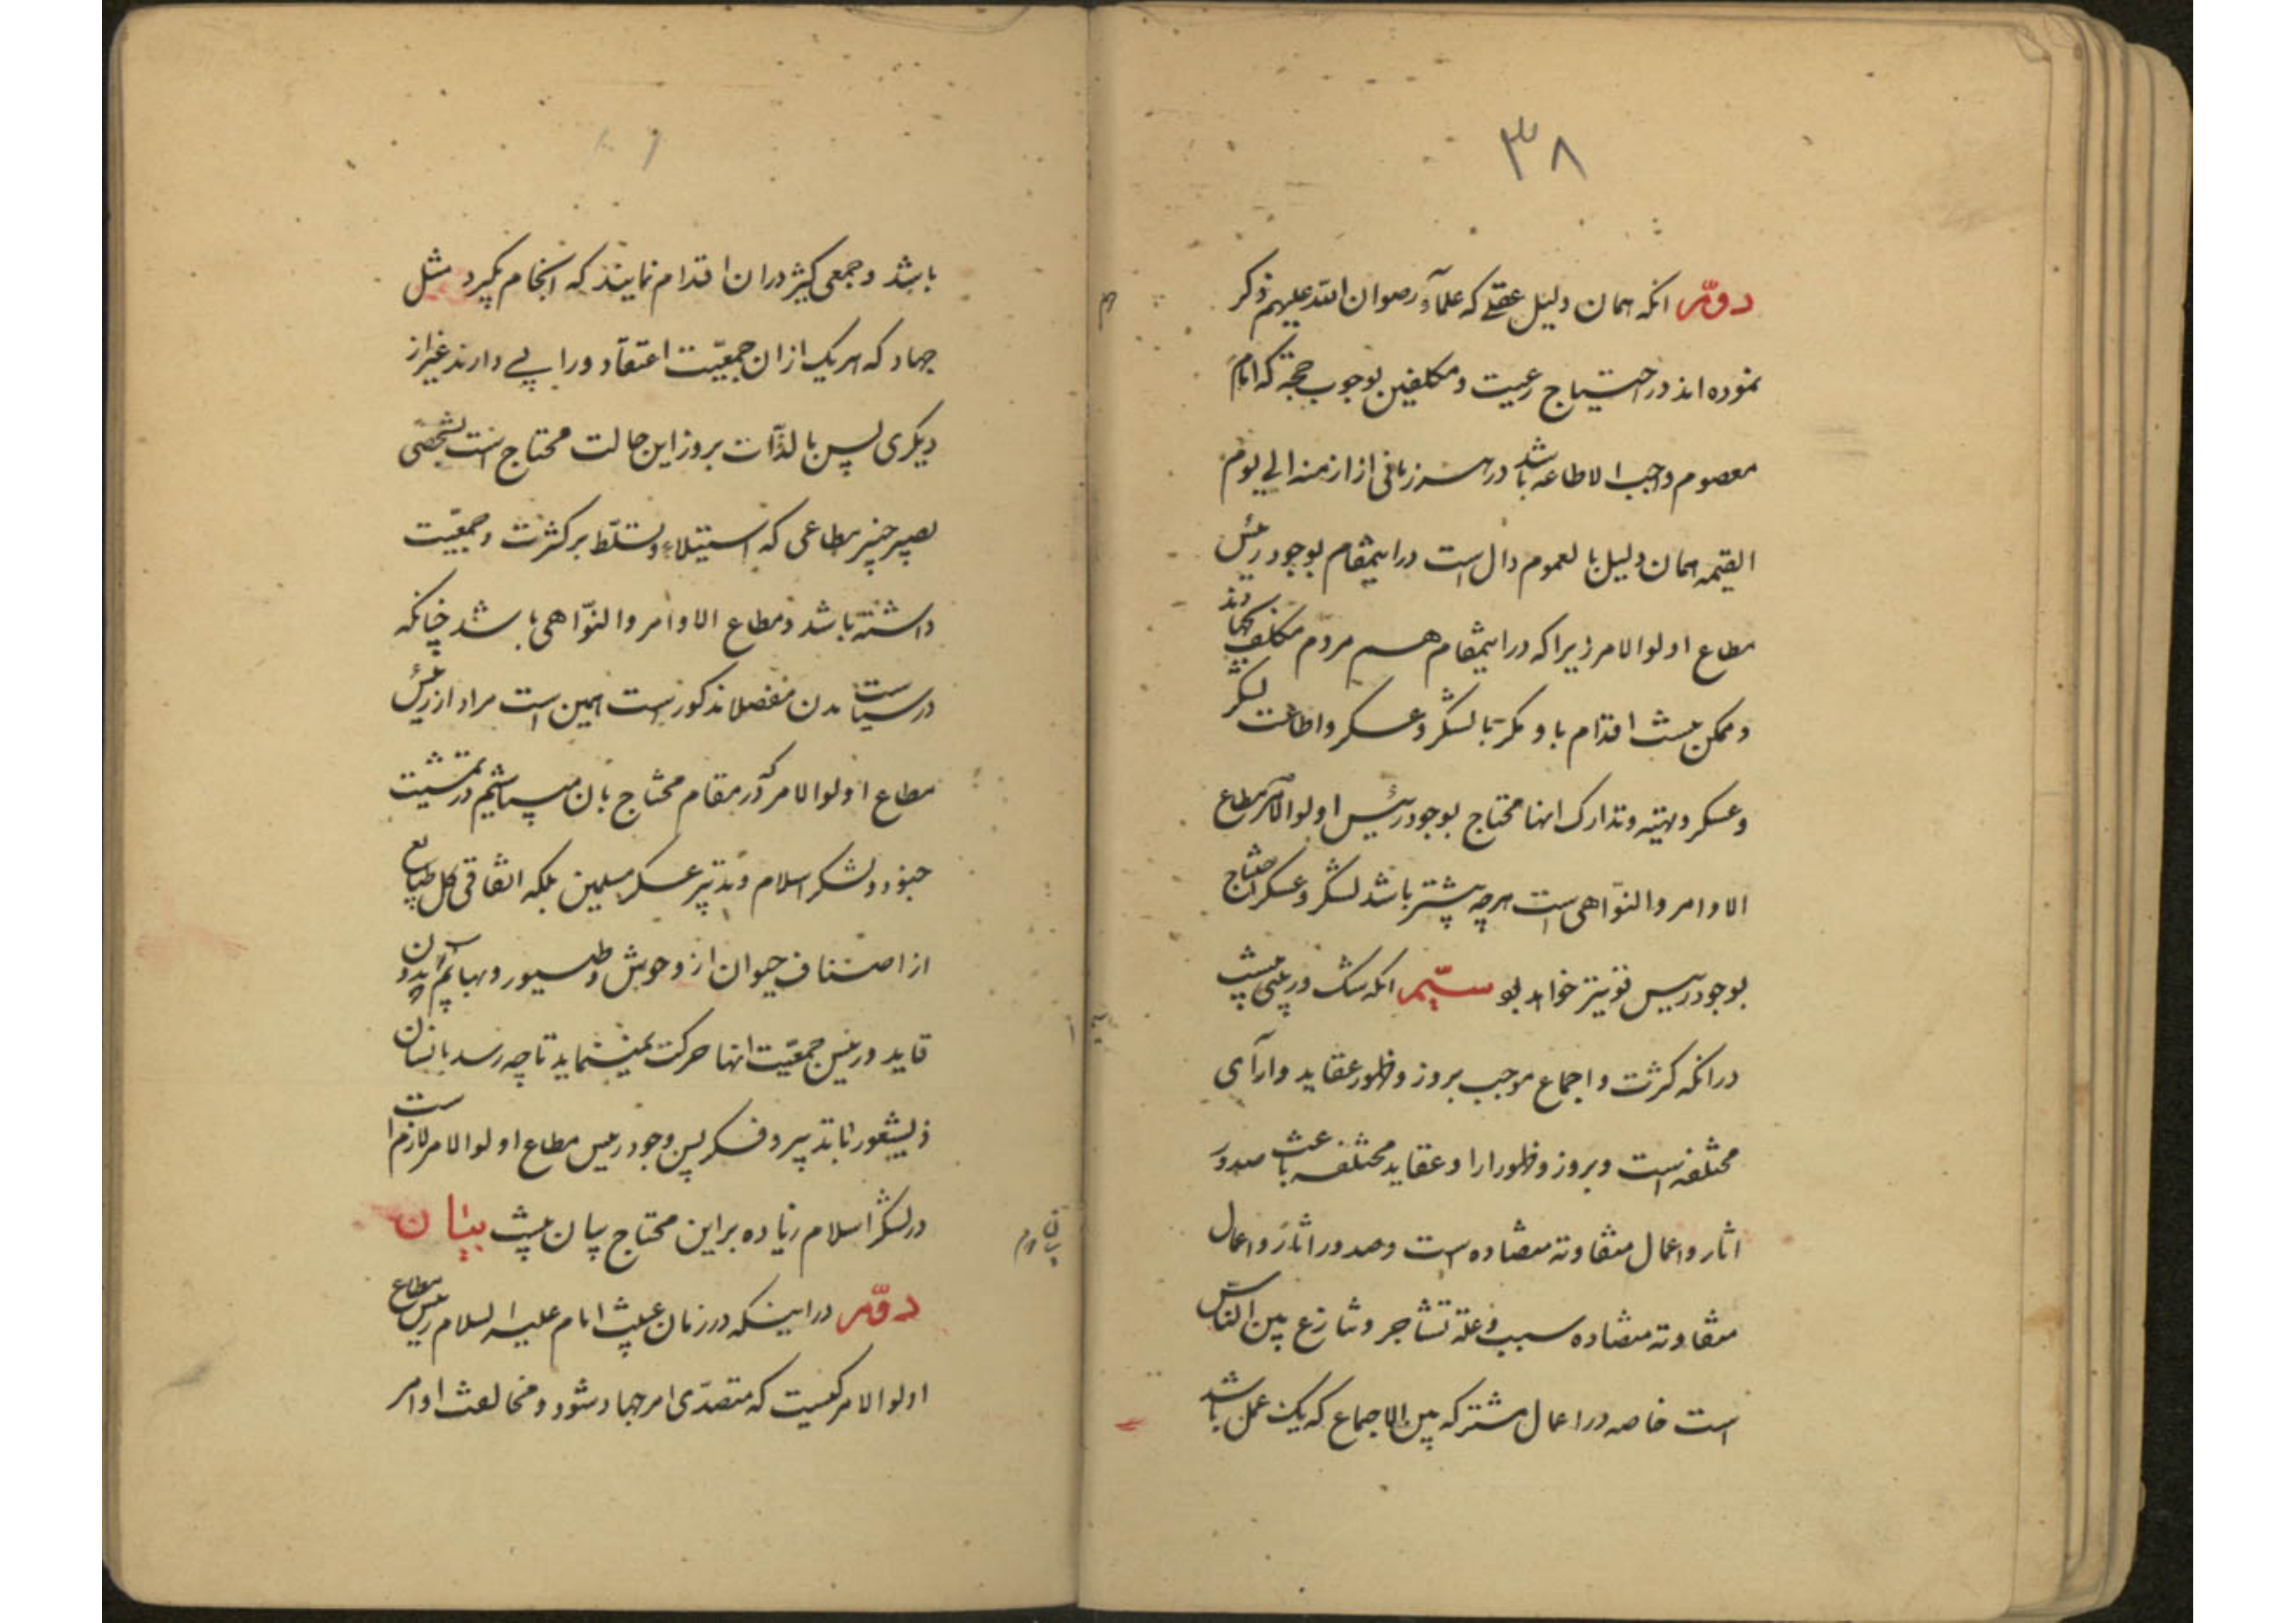 ۳۸
دوّم انکه همان دلیل عقلے که علمآء رضوان الله علیهم ذکر
نموده اند در احتیاج رعیت و مکلفین بوجوب حجة که امام
معصوم واجب الاطاعه باشد در هر زمانی از ازمنه الی یوم
القیمه همان دلیل بالعموم دال است در اینمقام بوجود رئیس
مطاع اولوالامر زیرا که در اینمقام هم مردم مکلف بجهادند
و ممکن نیست اقدام باو مگر با لشگر و عسکر و اطاعت لشگر
و عسکر و تهیّه و تدارک انها محتاج بوجود رئیس اولوالامر مطاع
الاوامر والنّواهی است هرچه بیشتر باشد لشگر و عسکر احتیاج
بوجود رییس فزونیتر خواهد بود سیّم انکه شک و ریبی نیست
در انکه کثرت و اجماع موجب بروز و ظهور عقاید و ارآی
مختلفه است و بروز و ظهور ارا و عقاید مختلفه باعث صدور
اثار و اعمال متفاوته متضاده است و صدور اثار و اعمال
متفاوته متضاده سبب و علة تشاجر و تنازع بین النّاس
است خاصه در اعمال مشترکه بین الاجماع که یک عمل باشد
باشد و جمعی کثیر در ان اقدام نمایند که انجام بگیرد مثل
جهاد که هر یک از ان جمعیّت اعتقاد و رایے دارند غیر از
دیگری پس بالذّآت بروز این حالت محتاج است بشخصی
بصیر خبیر مطاعی که استیلاء و تسلّط بر کثرت و جمعیّت
داشته باشد و مطاع الاوامر والنّواهی باشد چنانکه
در سیاست مدن مفصلا مذکور است همین است مراد از رئیس
مطاع اولوالامر که در مقام محتاج بان میباشیم در تمشیت
جنود و لشکر اسلام و تدبیر عسکر مسلمین بلکه اتفاقی کل طبایع
از اصناف حیوان از وحوش و طیور و بهایم بدون
قاید و رئیس جمعیّت انها حرکت نمینماید تا چه رسد بانسان
ذیشعور با تدبیر و فکر پس وجود رئیس مطاع اولوالامر لازم است
در لشگر اسلام زیاده بر این محتاج بیان نیست بیان
دوّم در اینکه در زمان غیبت امام علیه السلام رئیس مطاع
اولوالامر کیست که متصدّی امر جهاد شود و مخالفت اوامر
بیان دوم